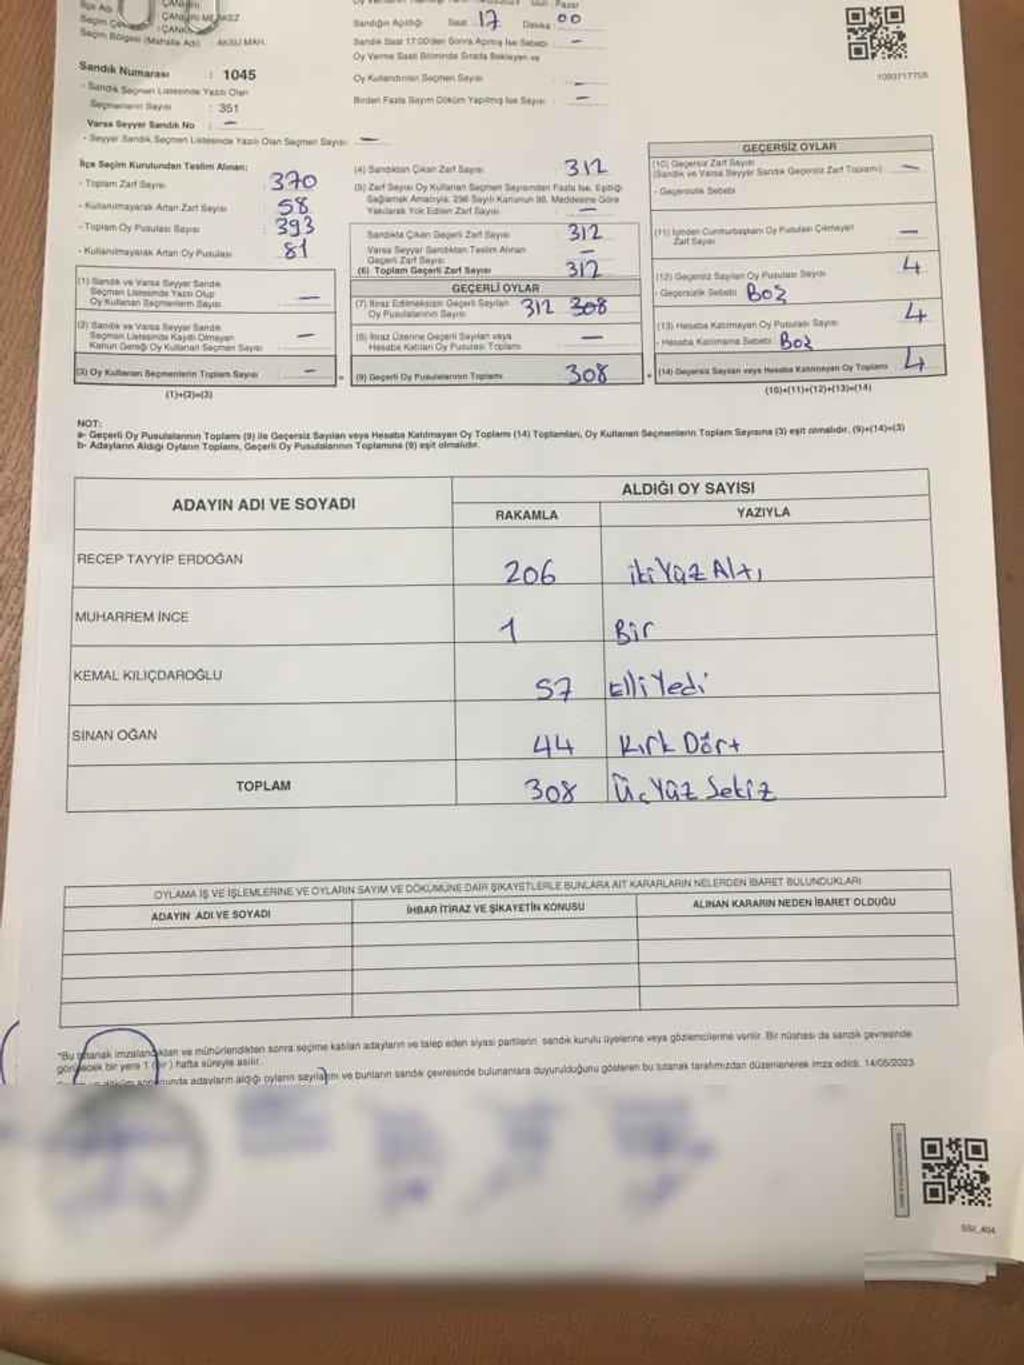 İlçe Adı
ÇANKIRI MERKEZ
Seçim Bölgesi (Mahalle Adı) : AKSU MAH.
Sandık Numarası : 1045
- Sandık Seçmen Listesinde Yazılı Olan
Seçmenlerin Sayısı : 351
Varsa Seyyar Sandık No : —
- Seyyar Sandık Seçmen Listesinde Yazılı Olan Seçmen Sayısı: —
Pazar
Sandığın Açıldığı Saat: 17 Dakika: 00
Sandık Saat 17:00'den Sonra Açılmış İse Sebebi: —
Oy Verme Saati Bitiminde Sırada Bekleyen ve
Oy Kullandırılan Seçmen Sayısı —
Birden Fazla Sayım Döküm Yapılmış İse Sayısı: —
İlçe Seçim Kurulundan Teslim Alınan:
- Toplam Zarf Sayısı : 370
- Kullanılmayarak Artan Zarf Sayısı : 58
- Toplam Oy Pusulası Sayısı : 393
- Kullanılmayarak Artan Oy Pusulası : 81
(1) Sandık ve Varsa Seyyar Sandık
Seçmen Listesinde Yazılı Olup
Oy Kullanan Seçmenlerin Sayısı —
(2) Sandık ve Varsa Seyyar Sandık
Seçmen Listesinde Kayıtlı Olmayan
Kanun Gereği Oy Kullanan Seçmen Sayısı —
(3) Oy Kullanan Seçmenlerin Toplam Sayısı —
(1)+(2)=(3)
(4) Sandıktan Çıkan Zarf Sayısı 312
(5) Zarf Sayısı Oy Kullanan Seçmen Sayısından Fazla İse, Eşitliği
Sağlamak Amacıyla; 298 Sayılı Kanunun 98. Maddesine Göre
Yakılarak Yok Edilen Zarf Sayısı —
Sandıkta Çıkan Geçerli Zarf Sayısı 312
Varsa Seyyar Sandıktan Teslim Alınan
Geçerli Zarf Sayısı —
(6) Toplam Geçerli Zarf Sayısı 312
GEÇERLİ OYLAR
(7) İtiraz Edilmeksizin Geçerli Sayılan
Oy Pusulalarının Sayısı 312 308
(8) İtiraz Üzerine Geçerli Sayılan veya
Hesaba Katılan Oy Pusulası Toplamı —
(9) Geçerli Oy Pusulalarının Toplamı 308
GEÇERSİZ OYLAR
(10) Geçersiz Zarf Sayısı
(Sandık ve Varsa Seyyar Sandık Geçersiz Zarf Toplamı) —
- Geçersizlik Sebebi
(11) İçinden Cumhurbaşkanı Oy Pusulası Çıkmayan
Zarf Sayısı —
(12) Geçersiz Sayılan Oy Pusulası Sayısı 4
- Geçersizlik Sebebi Boş
(13) Hesaba Katılmayan Oy Pusulası Sayısı 4
- Hesaba Katılmama Sebebi Boş
(14) Geçersiz Sayılan veya Hesaba Katılmayan Oy Toplamı 4
(10)+(11)+(12)+(13)=(14)
NOT:
a- Geçerli Oy Pusulalarının Toplamı (9) ile Geçersiz Sayılan veya Hesaba Katılmayan Oy Toplamı (14) Toplamları, Oy Kullanan Seçmenlerin Toplam Sayısına (3) eşit olmalıdır. (9)+(14)=(3)
b- Adayların Aldığı Oyların Toplamı, Geçerli Oy Pusulalarının Toplamına (9) eşit olmalıdır.
ADAYIN ADI VE SOYADI
ALDIĞI OY SAYISI
RAKAMLA YAZIYLA
RECEP TAYYİP ERDOĞAN 206 iki Yüz Altı
MUHARREM İNCE 1 Bir
KEMAL KILIÇDAROĞLU 57 Elli Yedi
SİNAN OĞAN 44 Kırk Dört
TOPLAM 308 Üç Yüz Sekiz
OYLAMA İŞ VE İŞLEMLERİNE VE OYLARIN SAYIM VE DÖKÜMÜNE DAİR ŞİKAYETLERLE BUNLARA AİT KARARLARIN NELERDEN İBARET BULUNDUKLARI
ADAYIN ADI VE SOYADI
İHBAR İTİRAZ VE ŞİKAYETİN KONUSU
ALINAN KARARIN NEDEN İBARET OLDUĞU
*Bu tutanak imzalandıktan ve mühürlendikten sonra seçime katılan adayların ve talep eden siyasi partilerin sandık kurulu üyelerine veya gözlemcilerine verilir. Bir nüshası da sandık çevresinde
görülecek bir yere 1 (bir) hafta süreyle asılır.
adayların aldığı oyların sayılarını ve bunların sandık çevresinde bulunanlara duyurulduğunu gösteren bu tutanak tarafımızdan düzenlenerek imza edildi. 14/05/2023